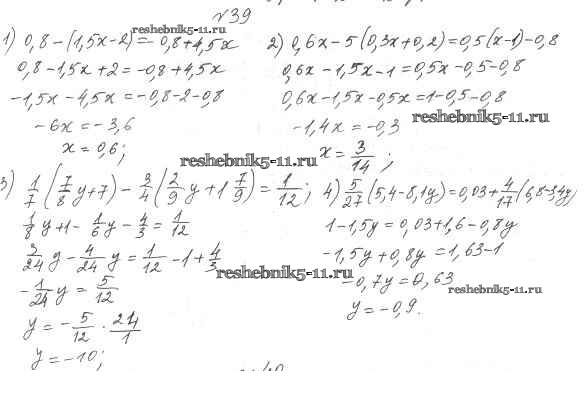 №39
1) 0,8-(1,5x-2)=-0,8+4,5x
0,8-1,5x+2=-0,8+4,5x
-1,5x-4,5x=-0,8-2-0,8
-6x=-3,6
x=0,6;
2) 0,6x-5(0,3x+0,2)=0,5(x-1)-0,8
0,6x-1,5x-1=0,5x-0,5-0,8
0,6x-1,5x-0,5x=1-0,5-0,8
-1,4x=-0,3
x=3/14;
3) 1/7(7/8y+7)-3/4(2/9y+1 7/9)=1/12;
1/8y+1-1/6y-4/3=1/12
3/24y-4/24y=1/12-1+4/3
-1/24y=5/12
y=-5/12·24/1
y=-10;
4) 5/27(5,4-8,1y)=0,03+4/17(6,8-3,4y)
1-1,5y=0,03+1,6-0,8y
-1,5y+0,8y=1,63-1
-0,7y=0,63
y=-0,9.
reshebnik5-11.ru
reshebnik5-11.ru
reshebnik5-11.ru
reshebnik5-11.ru
reshebnik5-11.ru